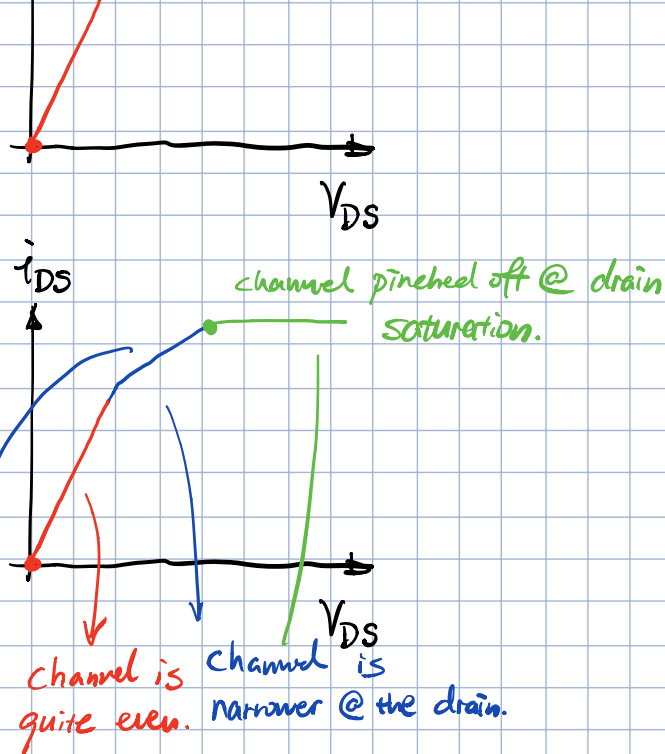 V_DS
i_DS
channel pinched off @ drain
saturation.
V_DS
Channel is
quite even.
Channel is
narrower @ the drain.